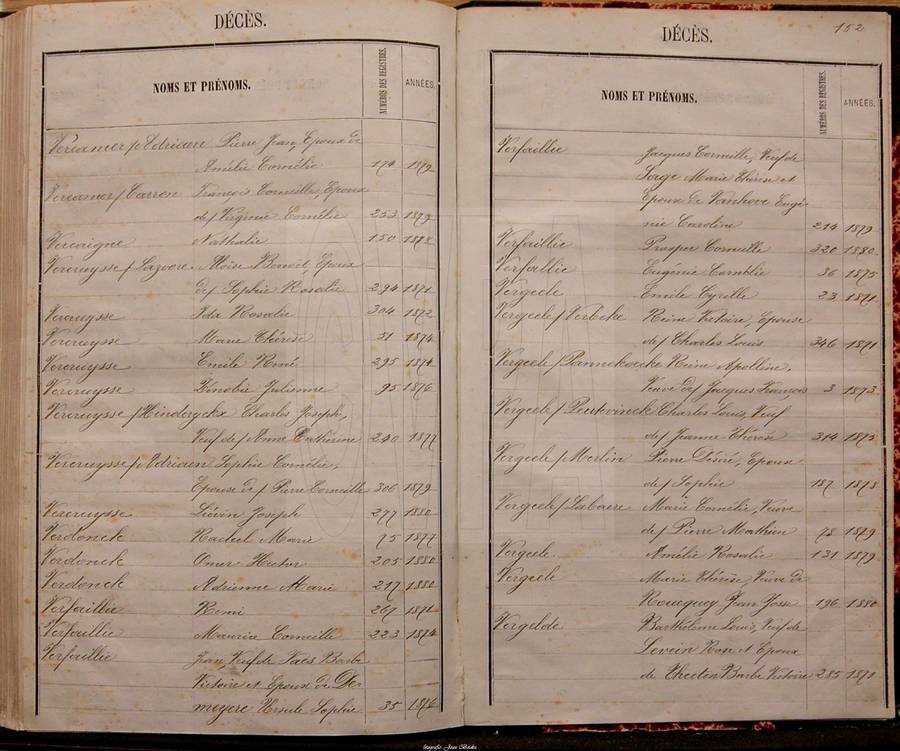 DÉCÈS.
NOMS ET PRÉNOMS. NUMÉROS DES REGISTRES. ANNÉES.
Vercamer /Adriaen Pierre Jean, Epoux de
Amélie Cornélie 174 1879
Vercamer /Carron François Corneille, Epoux
de/ Virginie Cornélie 253 1879
Vercaigne Nathalie 150 1878
Vercruysse /Lazoore Moïse Benoit Epoux
de/ Sophie Rosalie 294 1871
Vercruysse Ida Rosalie 304 1872
Vercruysse Marie Thérèse 51 1874
Vercruysse Emile Remé 295 1874
Vercruysse Zénobie Julienne 95 1876
Vercruysse /Hinderyckx Charles Joseph,
Veuf de/ Anne Catherine 240 1877
Vercruysse /Adriaen Sophie Cornélie,
Epouse de/ Pierre Corneille 306 1879
Vercruysse Liévin Joseph 277 1880
Verdonck Rachel Marie 75 1877
Verdonck Omer Hector 205 1880
Verdonck Adrienne Marie 217 1880
Verfaillie Remi 267 1871
Verfaillie Maurice Corneille 223 1874
Verfaillie Jean, Veuf de Faes Barbe
Victoire et Epoux de De-
meyere Ursule Sophie 35 1876
DÉCÈS. 152
NOMS ET PRÉNOMS. NUMÉROS DES REGISTRES. ANNÉES.
Verfaillie Jacques Corneille, Veuf de
Sorge Marie Thérèse et
Epoux de Vanhove Eugé-
nie Caroline 214 1879
Verfaillie Prosper Corneille 320 1880
Verfaillie Eugénie Cornélie 36 1875
Vergeele Emile Cyrille 23 1871
Vergeele /Verbeke Reine Victoire, Epouse
de/ Charles Louis 346 1871
Vergeele /Pannekoecke Reine Apolline,
Veuve de/ Jacques François 3 1873
Vergeele /Deutevinck Charles Louis, Veuf
de/ Jeanne Thérèse 314 1875
Vergeele /Merlin Pierre Désiré, Epoux
de/ Sophie 187 1878
Vergeele /Labaere Marie Cornélie, Veuve
de/ Pierre Mathieu 78 1879
Vergeele Amélie Rosalie 131 1879
Vergeele Marie Thérèse, Veuve de
Roucquoy Jean Josse 196 1880
Vergelde Barthélemi Louis, Veuf de
Levein Rose et Epoux
de Theeten Barbe Victoire 285 1871
fotografie Jean Beeckx